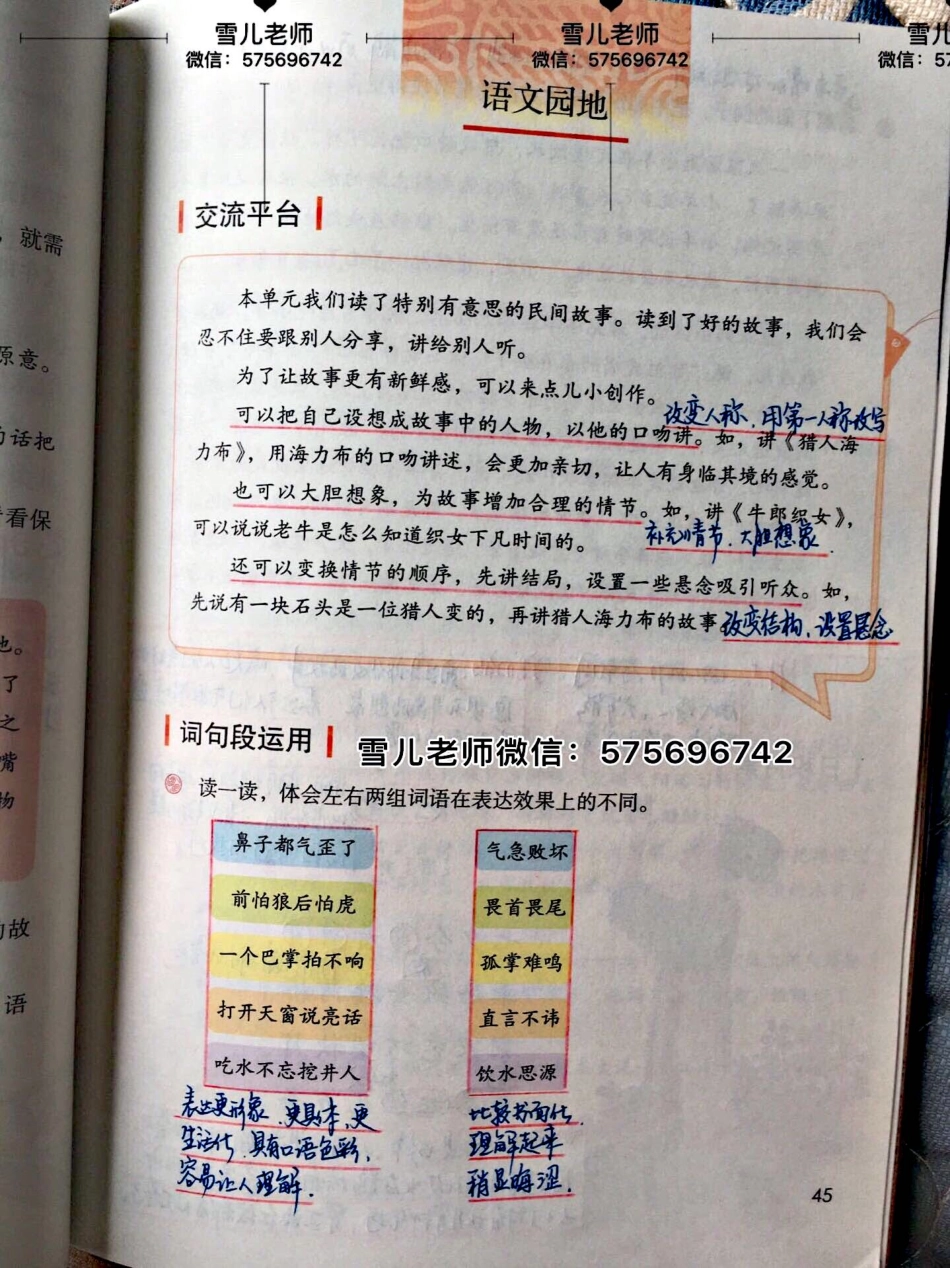 雪儿老师 雪儿老师 雪儿
微信：575696742 微信：575696742 微信：57
语文园地
交流平台
，就需
原意。
的话把
看看保
也。
了
之
嘴
物
的故
语
本单元我们读了特别有意思的民间故事。读到了好的故事，我们会
忍不住要跟别人分享，讲给别人听。
为了让故事更有新鲜感，可以来点儿小创作。
改变人称、用第一人称改写
可以把自己设想成故事中的人物，以他的口吻讲。如，讲《猎人海
力布》，用海力布的口吻讲述，会更加亲切，让人有身临其境的感觉。
也可以大胆想象，为故事增加合理的情节。如，讲《牛郎织女》，
可以说说老牛是怎么知道织女下凡时间的。
补充情节、大胆想象
还可以变换情节的顺序，先讲结局，设置一些悬念吸引听众。如，
先说有一块石头是一位猎人变的，再讲猎人海力布的故事
改变结构、设置悬念
词句段运用
雪儿老师微信：575696742
读一读，体会左右两组词语在表达效果上的不同。
鼻子都气歪了 气急败坏
前怕狼后怕虎 畏首畏尾
一个巴掌拍不响 孤掌难鸣
打开天窗说亮话 直言不讳
吃水不忘挖井人 饮水思源
表达更形象、更具体、更
生活化、具有口语色彩，
容易让人理解.
比较书面化
理解起来
稍显晦涩.
45